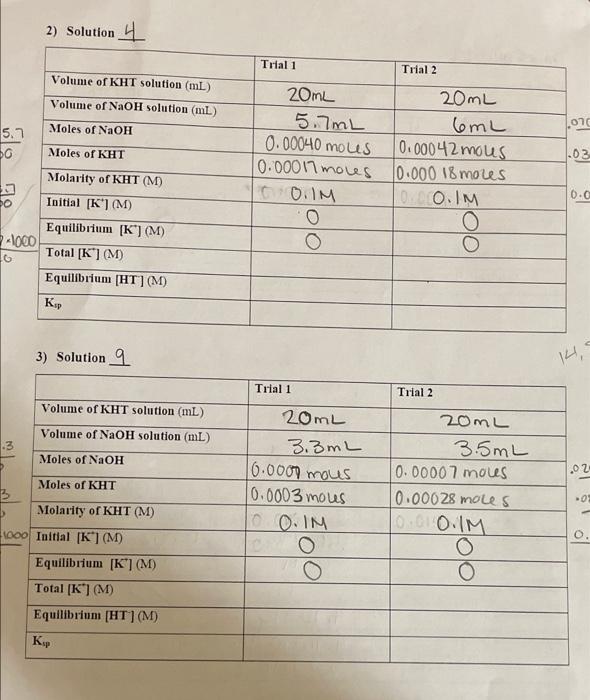 2) Solution 4
Trial 1 Trial 2
Volume of KHT solution (mL) 20mL 20mL
Volume of NaOH solution (mL) 5.7mL 6mL
Moles of NaOH 0.00040 moles 0.00042 moles
Moles of KHT 0.00017 moles 0.00018 moles
Molarity of KHT (M) 0.1M 0.1M
Initial [K⁺] (M) 0 0
Equilibrium [K⁺] (M) 0 0
Total [K⁺] (M)
Equilibrium [HT⁻] (M)
Ksp
5.7
.03
1000
14,
3) Solution 9
Trial 1 Trial 2
Volume of KHT solution (mL) 20mL 20mL
Volume of NaOH solution (mL) 3.3mL 3.5mL
Moles of NaOH 0.00007 moles
Moles of KHT 0.0003 moles 0.00028 moles
Molarity of KHT (M) 0.1M 0.1M
Initial [K⁺] (M) 0 0
Equilibrium [K⁺] (M) 0 0
Total [K⁺] (M)
Equilibrium [HT⁻] (M)
Ksp
.3
3
1000
0.